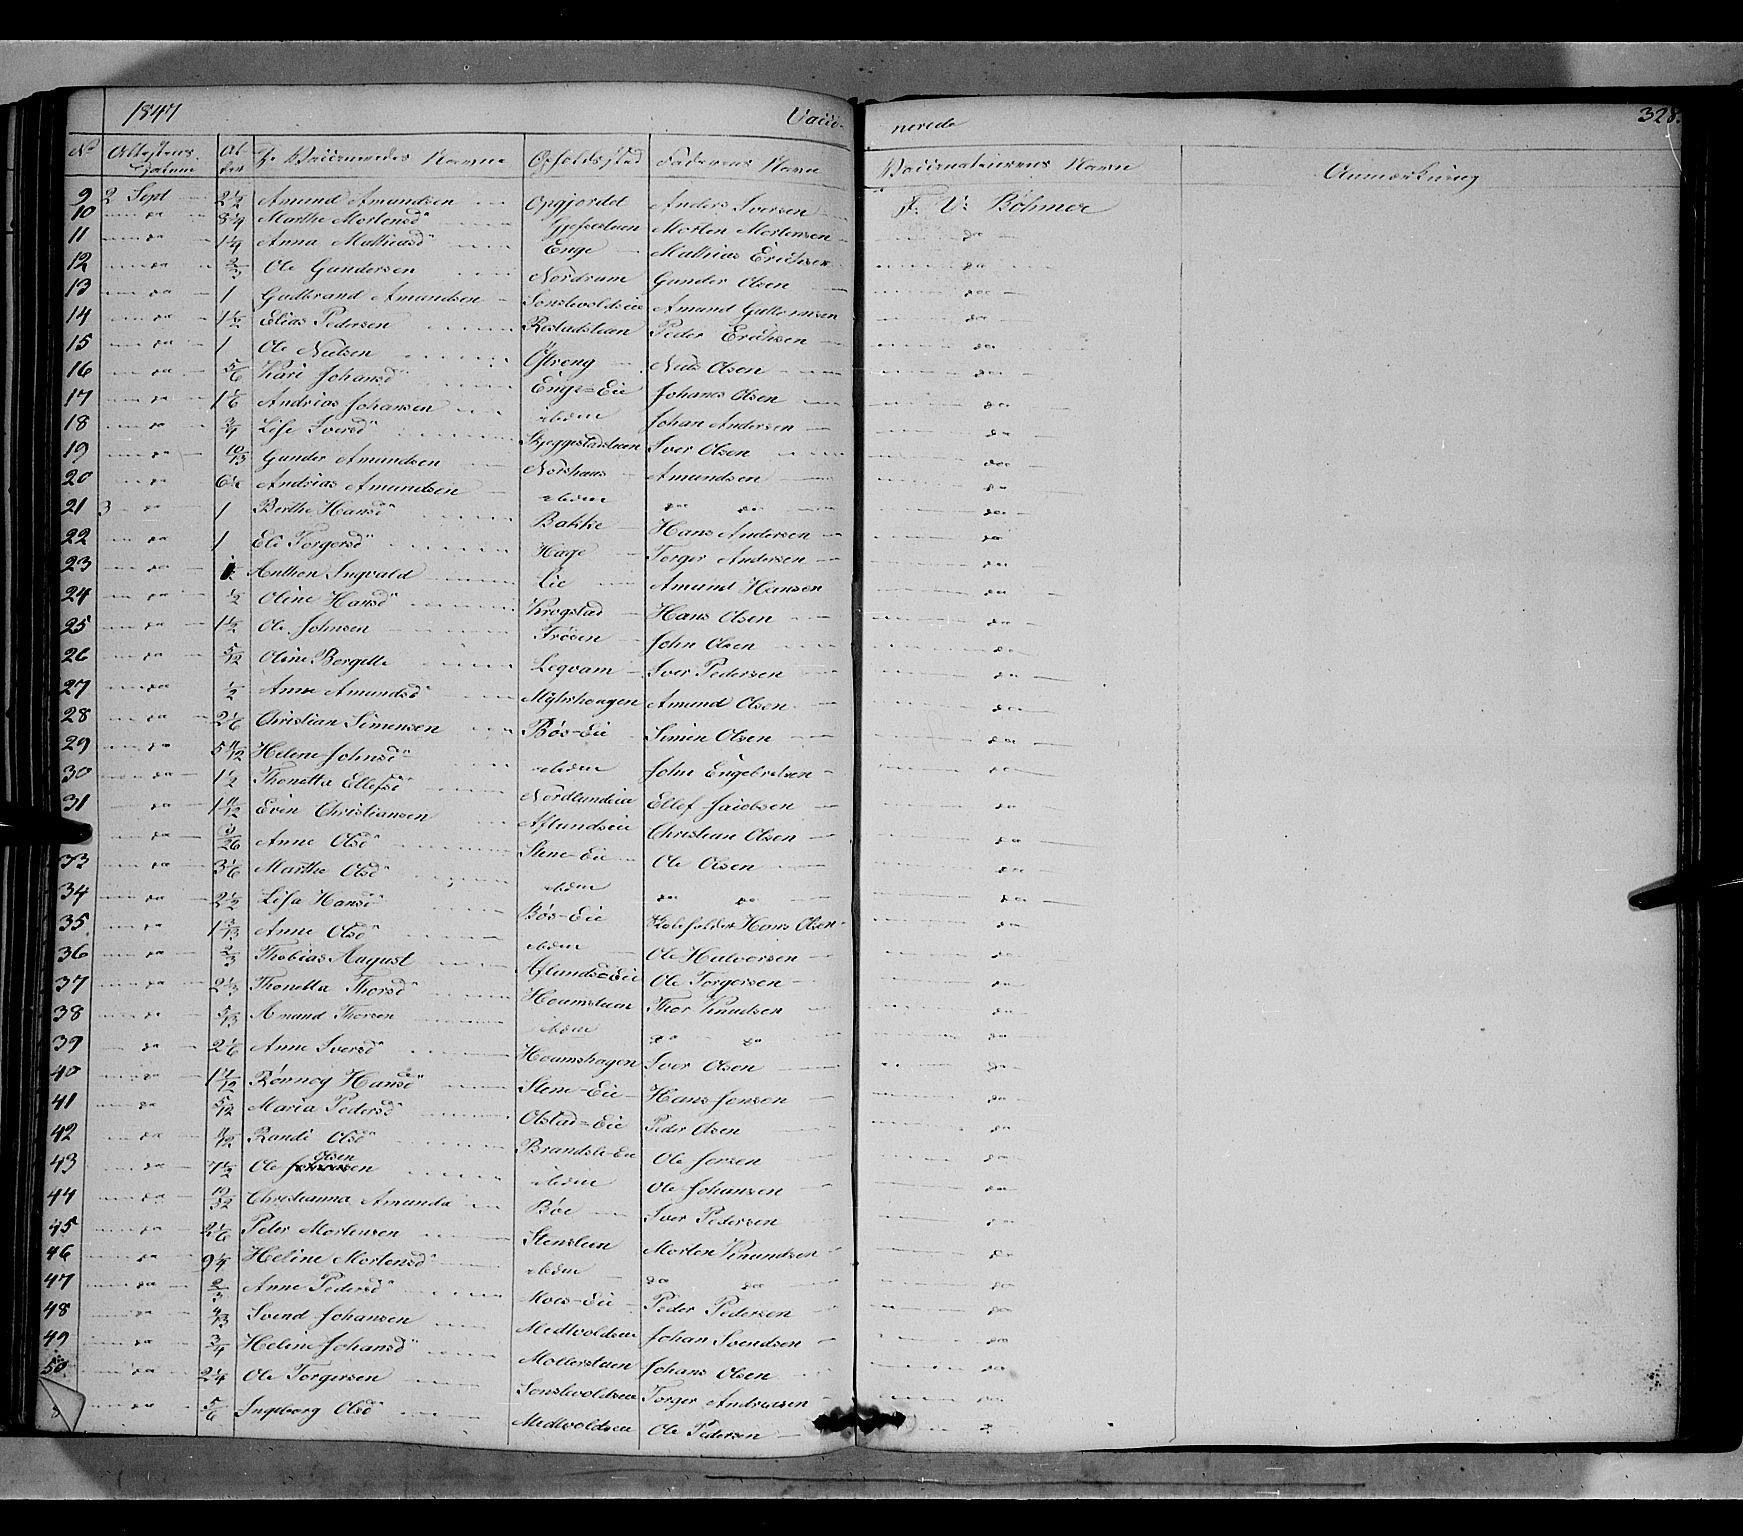 1847 Vacci- nerede 328.
No Attestens Datum Al- der De Vaccineredes Navne Opholdssted Faderens Navn Vaccinateurens Navn Anmærkning
9 2 Sept 2 1/4 Amund Amundsen Opgjordet Anders Iversen F. V. Bøhmer
10 da 8 1/4 Marthe Mortensd Morten Mortensen da
11 da 1 1/4 Anna Mathiasd Enge Mathias Erichsen da
12 da 2/3 Ole Gundersen Nordrum Gunder Olsen da
13 da 1 Gudbrand Amundsen Amund da
14 da 1 1/2 Elias Pedersen Rostadstuen Peder Erichsen da
15 da 1 Ole Nielsen Østreng Niels Olsen da
16 da 5/6 Kari Johansd Enge-Eie Johans Olsen da
17 da 1 1/6 Andreas Johansen ibdem Johan Andersen da
18 da 3/4 Lise Iversd Skjeggestadstuen Iver Olsen da
19 da 10/13 Gunder Amundsen Norshaus Amundsen da
20 da Andreas Amundsen ibdem da da da
21 3 da 1 Berthe Hansd Bakke Hans Andersen da
22 da 1 Eli Torgersd Hage Torger Andersen da
23 da Anthon Ingvald Lie Amund Hansen da
24 da 1/2 Oline Hansd Krogstad Hans Olsen da
25 da 1 1/2 Ole Johnsen Frøsen John Olsen da
26 da 5/12 Oline Bergitte Leqvam Iver Pedersen da
27 da 1/2 Anne Amundsd Myhrhougen Amund Olsen da
28 da 2 1/6 Christian Simensen Bøs-Eie Simen Olsen da
29 da 5 Helene Johnsd ibdem John Engebretsen da
30 da 1 1/2 Thonetta Ellefsd Nordlundeie Ellef Jacobsen da
31 da 1 Even Christiansen Aflundseie Christian Olsen da
da Anne Olsd Stene-Eie Ole Olsen da
33 da 3 1/6 Marthe Olsd ibdem da da da
34 da 2 1/2 Lisa Hansd Bøs-Eie Hans Olsen da
35. da 1 Anne Olsd ibdem Ole Halvorsen da
36 da 2/3 Thobias August Aflundseie Ole Torgersen da
37 da 2 1/3 Thonetta Thorsd Houmstuen Thor Knudsen da
38 da 5/13 Amund Thorsen ibdem da da da
39 da 2 1/6 Anne Iversd Houmshagen Iver Olsen da
40 da 1 Rønnog Hansd Stene-Eie Hans Jensen da
41 da 5/12 Maria Pedersd Olstad-Eie Peder Olsen da
42 da Randi Olsd Brandsts-Eie Ole Jensen da
43 da 7 1/2 Ole Olsen ibdem Ole Johansen da
44 da Christianna Amunda Bøe Iver Pedersen da
45 da 2 1/6 Peter Mortensen Stenstuen Morten Knundsen da
46 da 9 1/4 Heline Mortensd ibdem da da
47 da 2/3 Anne Pedersd Moes-Eie Peder Pedersen da
48 da 4/13 Svend Johansen Medtvoldseie Johan Svendsen da
49 da 3/4 Heline Johansd Mollerstuen Johans Olsen da
50 da 2 1/4 Ole Torgersen Torger Andreassen da
da 5/6 Ingeborg Olsd Medtvoldseie Ole Pedersen